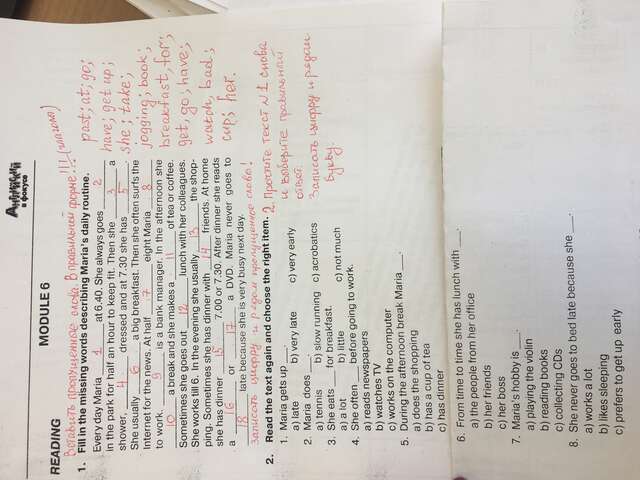 Английский
в фокусе
MODULE 6
READING
Вставить пропущенные слова. В правильной форме!!! (глаголы)
1. Fill in the missing words describing Maria's daily routine.
Every day Maria 1 at 6.40. She always goes 2
in the park for half an hour to keep fit. Then she 3 a
shower, 4 dressed and at 7.30 she has 5.
She usually 6 a big breakfast. Then she often surfs the
Internet for the news. At half 7 eight Maria 8
to work. 9 is a bank manager. In the afternoon she
10 a break and she makes a 11 of tea or coffee.
Sometimes she goes out 12 lunch with her colleagues.
She works till 6. In the evening she usually 13 the shop-
ping. Sometimes she has dinner with 14 friends. At home
she has dinner 15 7.00 or 7.30. After dinner she reads
a 16 or 17 a DVD. Maria never goes to
18 late because she is very busy next day.
Записать цифру и рядом пропущенное слово!
past; at; go;
have; get up;
she; take;
jogging; book;
breakfast, for;
get, go; have;
watch, bad;
cup; her.
2. Read the text again and choose the right item.
1. Maria gets up ___.
a) late b) very late c) very early
2. Maria does ___.
a) tennis b) slow running c) acrobatics
3. She eats ___ for breakfast.
a) a lot b) little c) not much
4. She often ___ before going to work.
a) reads newspapers
b) watches TV
c) works on the computer
5. During the afternoon break Maria ___.
a) does the shopping
b) has a cup of tea
c) has dinner
2. Прочтите текст N1 снова
и выберите правильный
ответ.
Записать цифру и рядом
букву.
6. From time to time she has lunch with ___.
a) the people from her office
b) her friends
c) her boss
7. Maria's hobby is ___.
a) playing the violin
b) reading books
c) collecting CDs
8. She never goes to bed late because she ___.
a) works a lot
b) likes sleeping
c) prefers to get up early